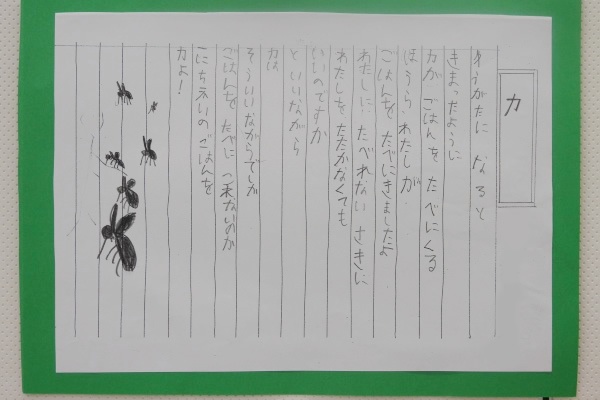 カ
ゆうがたに なると
きまったように
カが ごはんを たべにくる
ほうら わたしが
ごはんを たべにきましたよ
わたしに たべれない さきに
わたしを たたかなくても
いいのですか
といいながら
カは
そういいながらでしか
ごはんを たべに 来ないのか
ごはんを
カよ!